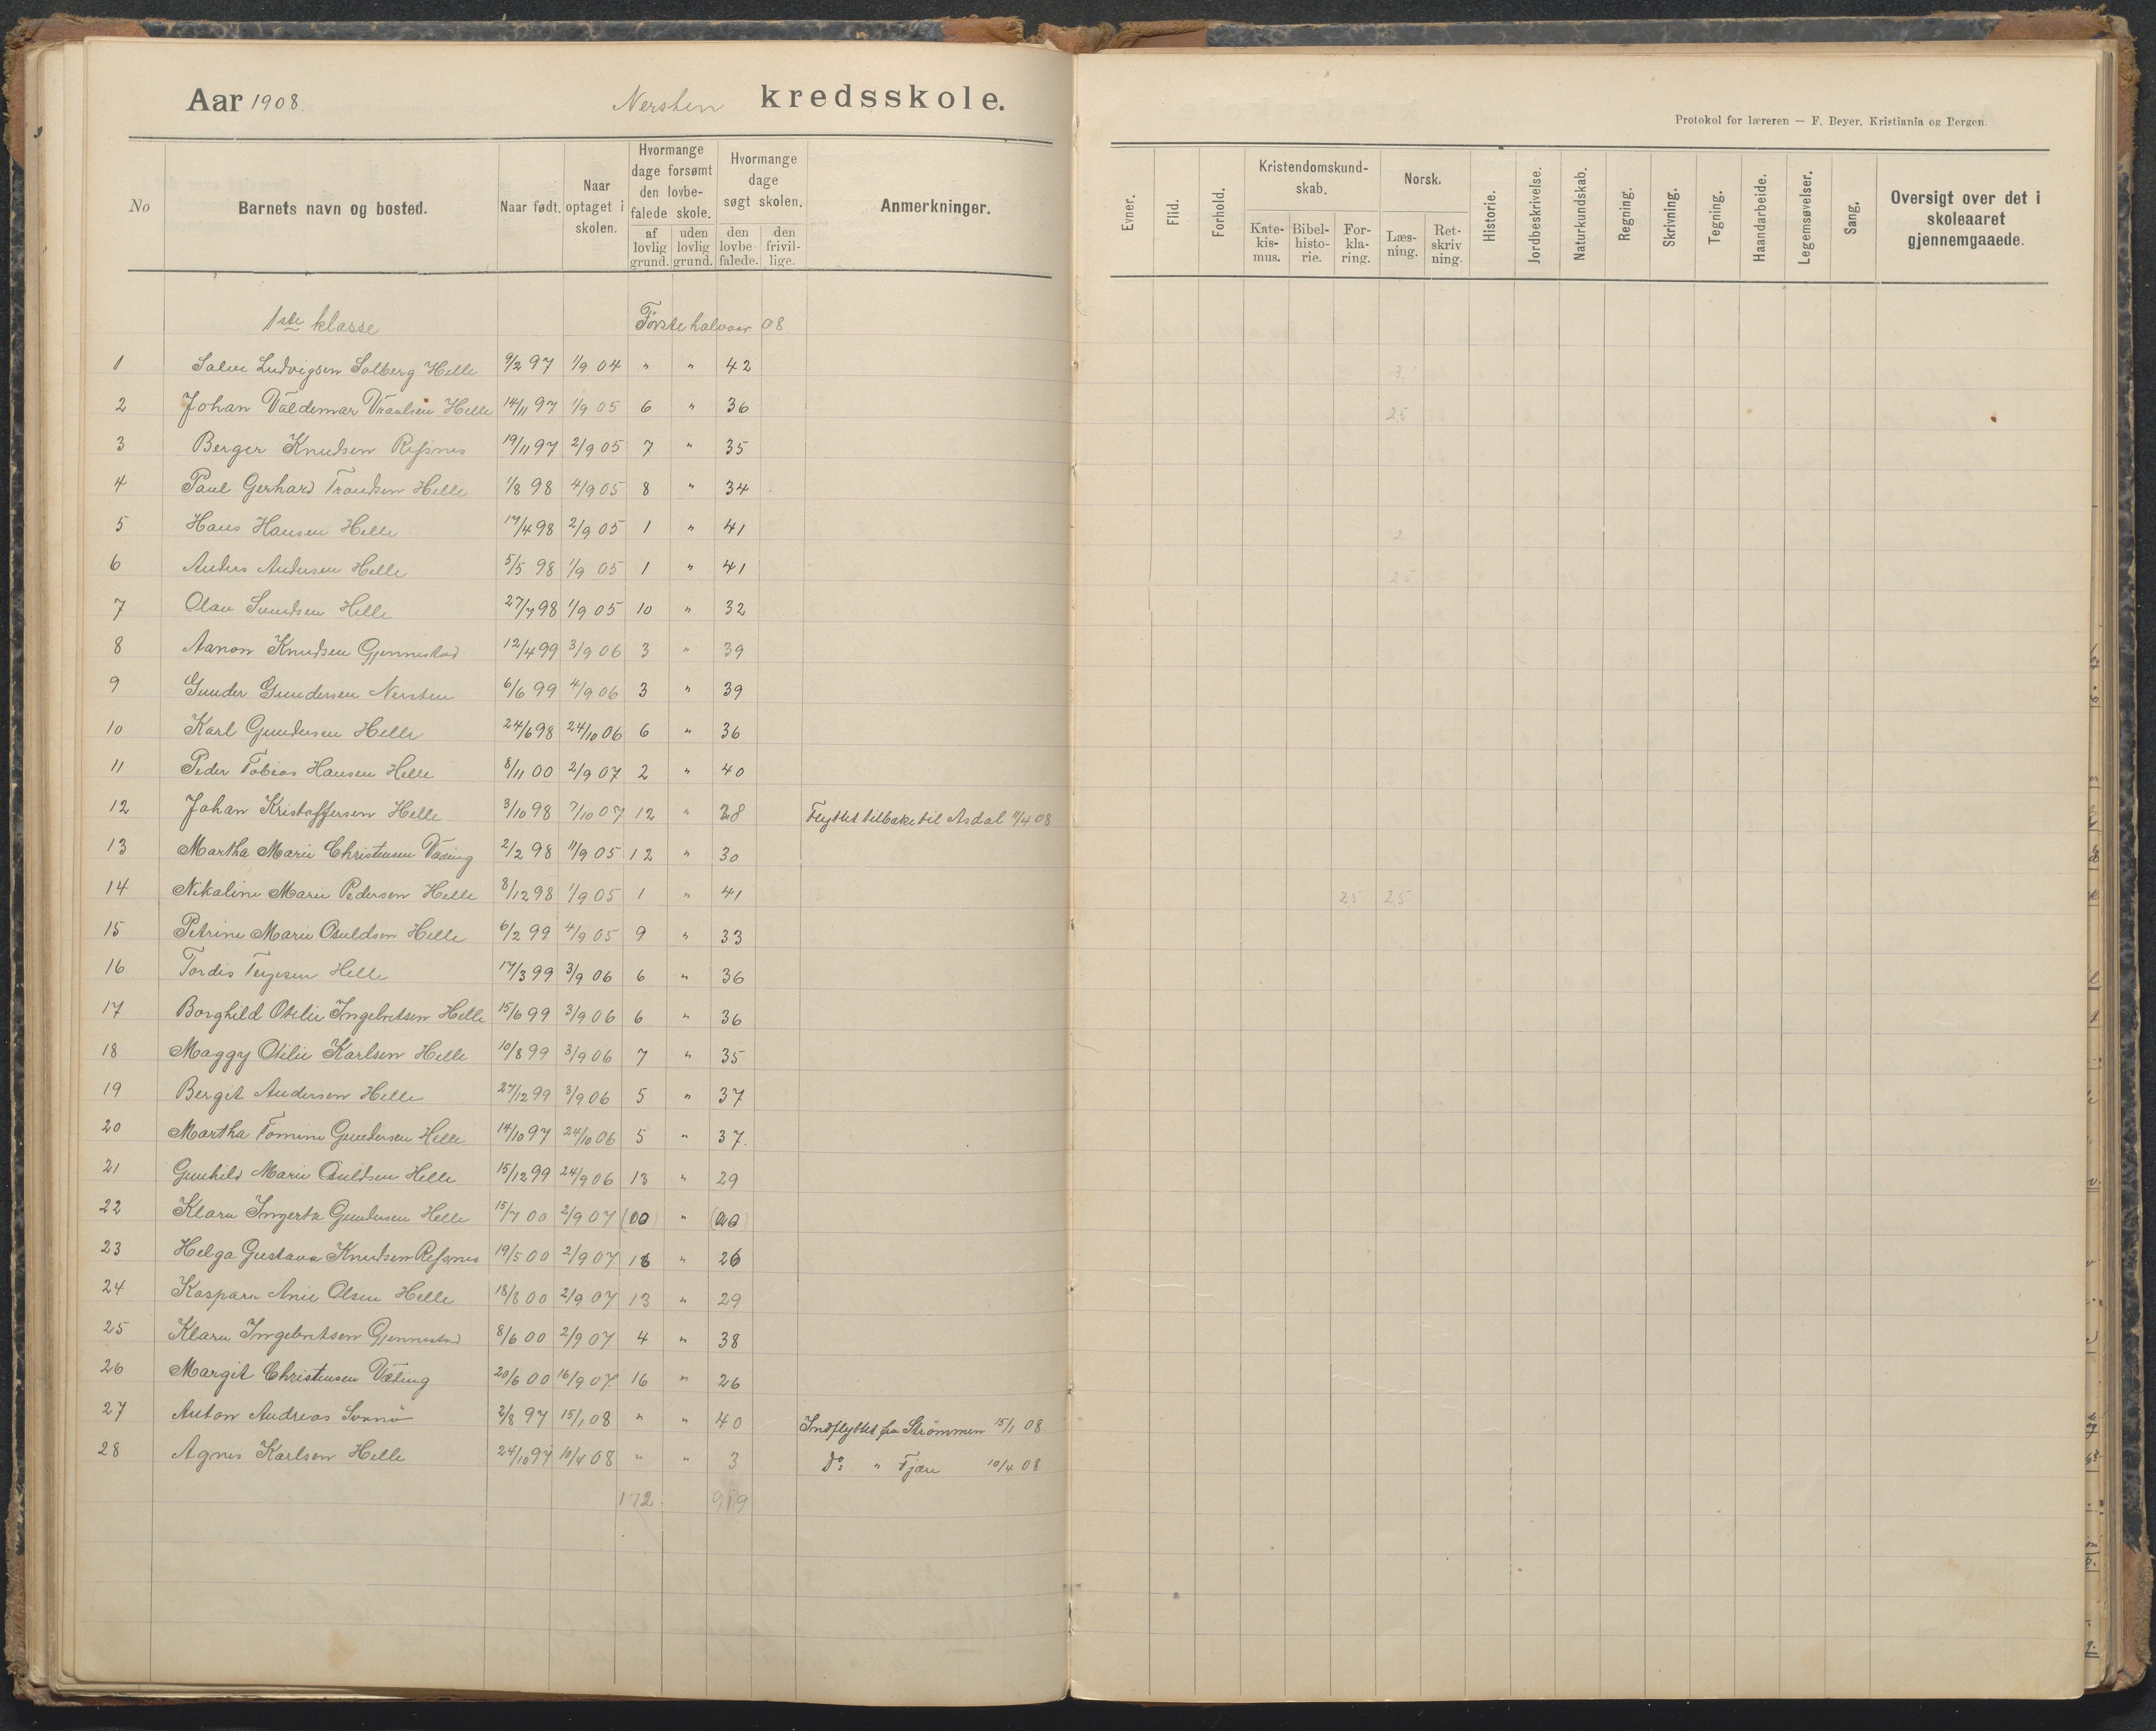 Aar 1908. Nersten kredsskole.
No Barnets navn og bosted. Naar født. Naar optaget i skolen. Hvormange dage forsømt den lovbefalede skole. af lovlig grund. uden lovlig grund. Hvormange dage søgt skolen. den lovbefalede. den frivillige. Anmerkninger.
1ste klasse Første halvaar 08
1 Salve Ludvigsen Solberg Helle 9/2 97 1/9 04 " " 42
2 Johan Valdemar Vraalsen Helle 14/11 97 1/9 05 6 " 36
3 Berger Knudsen Refsnes 19/11 97 2/9 05 7 " 35
4 Paul Gerhard Trondsen Helle 1/8 98 4/9 05 8 " 34
5 Hans Hansen Helle 17/4 98 2/9 05 1 " 41
6 Anders Andersen Helle 5/5 98 1/9 05 1 " 41
7 Olav Sundsen Helle 27/7 98 1/9 05 10 " 32
8 Aanon Knudsen Gjennestad 12/4 99 3/9 06 3 " 39
9 Gunder Gundersen Nersten 6/6 99 4/9 06 3 " 39
10 Karl Gundersen Helle 24/6 98 24/10 06 6 " 36
11 Peder Tobias Hansen Helle 8/11 00 2/9 07 2 " 40
12 Johan Kristoffersen Helle 3/10 98 7/10 07 12 " 28 Flyttet tilbake til Asdal 11/4 08
13 Martha Marie Christensen Væting 2/2 98 11/9 05 12 " 30
14 Nikoline Marie Pedersen Helle 8/12 98 1/9 05 1 " 41
15 Petrine Marie Osuldsen Helle 6/2 99 4/9 05 9 " 33
16 Tordis Terjesen Helle 17/3 99 3/9 06 6 " 36
17 Borghild Otilie Ingebretsen Helle 15/6 99 3/9 06 6 " 36
18 Maggy Otilie Karlsen Helle 10/8 99 3/9 06 7 " 35
19 Bergit Andersen Helle 27/12 99 3/9 06 5 " 37
20 Martha Tomine Gundersen Helle 14/10 97 24/10 06 5 " 37.
21 Gunhild Marie Osuldsen Helle 15/12 99 24/9 06 13 " 29
22 Klara Ingerta Gundersen Helle 15/7 00 2/9 07 (00) " (00)
23 Helga Gustava Knudsen Refsnes 19/5 00 2/9 07 16 " 26
24 Kaspara Anie Olsen Helle 18/8 00 2/9 07 13 " 29
25 Klara Ingebretsen Gjennestad 8/6 00 2/9 07 4 " 38
26 Margit Christensen Væting 20/6 00 16/9 07 16 " 26
27 Anton Andreas 2/8 97 15/1 08 " " 40 Indflyttet fra Strømmen 15/1 08
28 Agnes Karlsen Helle 24/10 97 10/4 08 " " 3 Do " Fjære 10/4 08
172 919
Protokol for læreren — F. Beyer, Kristiania og Bergen.
Evner. Flid. Forhold. Kristendomskundskab. Katekismus. Bibelhistorie. Forklaring. Norsk. Læsning. Retskrivning. Historie. Jordbeskrivelse. Naturkundskab. Regning. Skrivning. Tegning. Haandarbeide. Legemsøvelser. Sang. Oversigt over det i skoleaaret gjennemgaaede.
3.
2.5
2
2.5
2.5 2.5